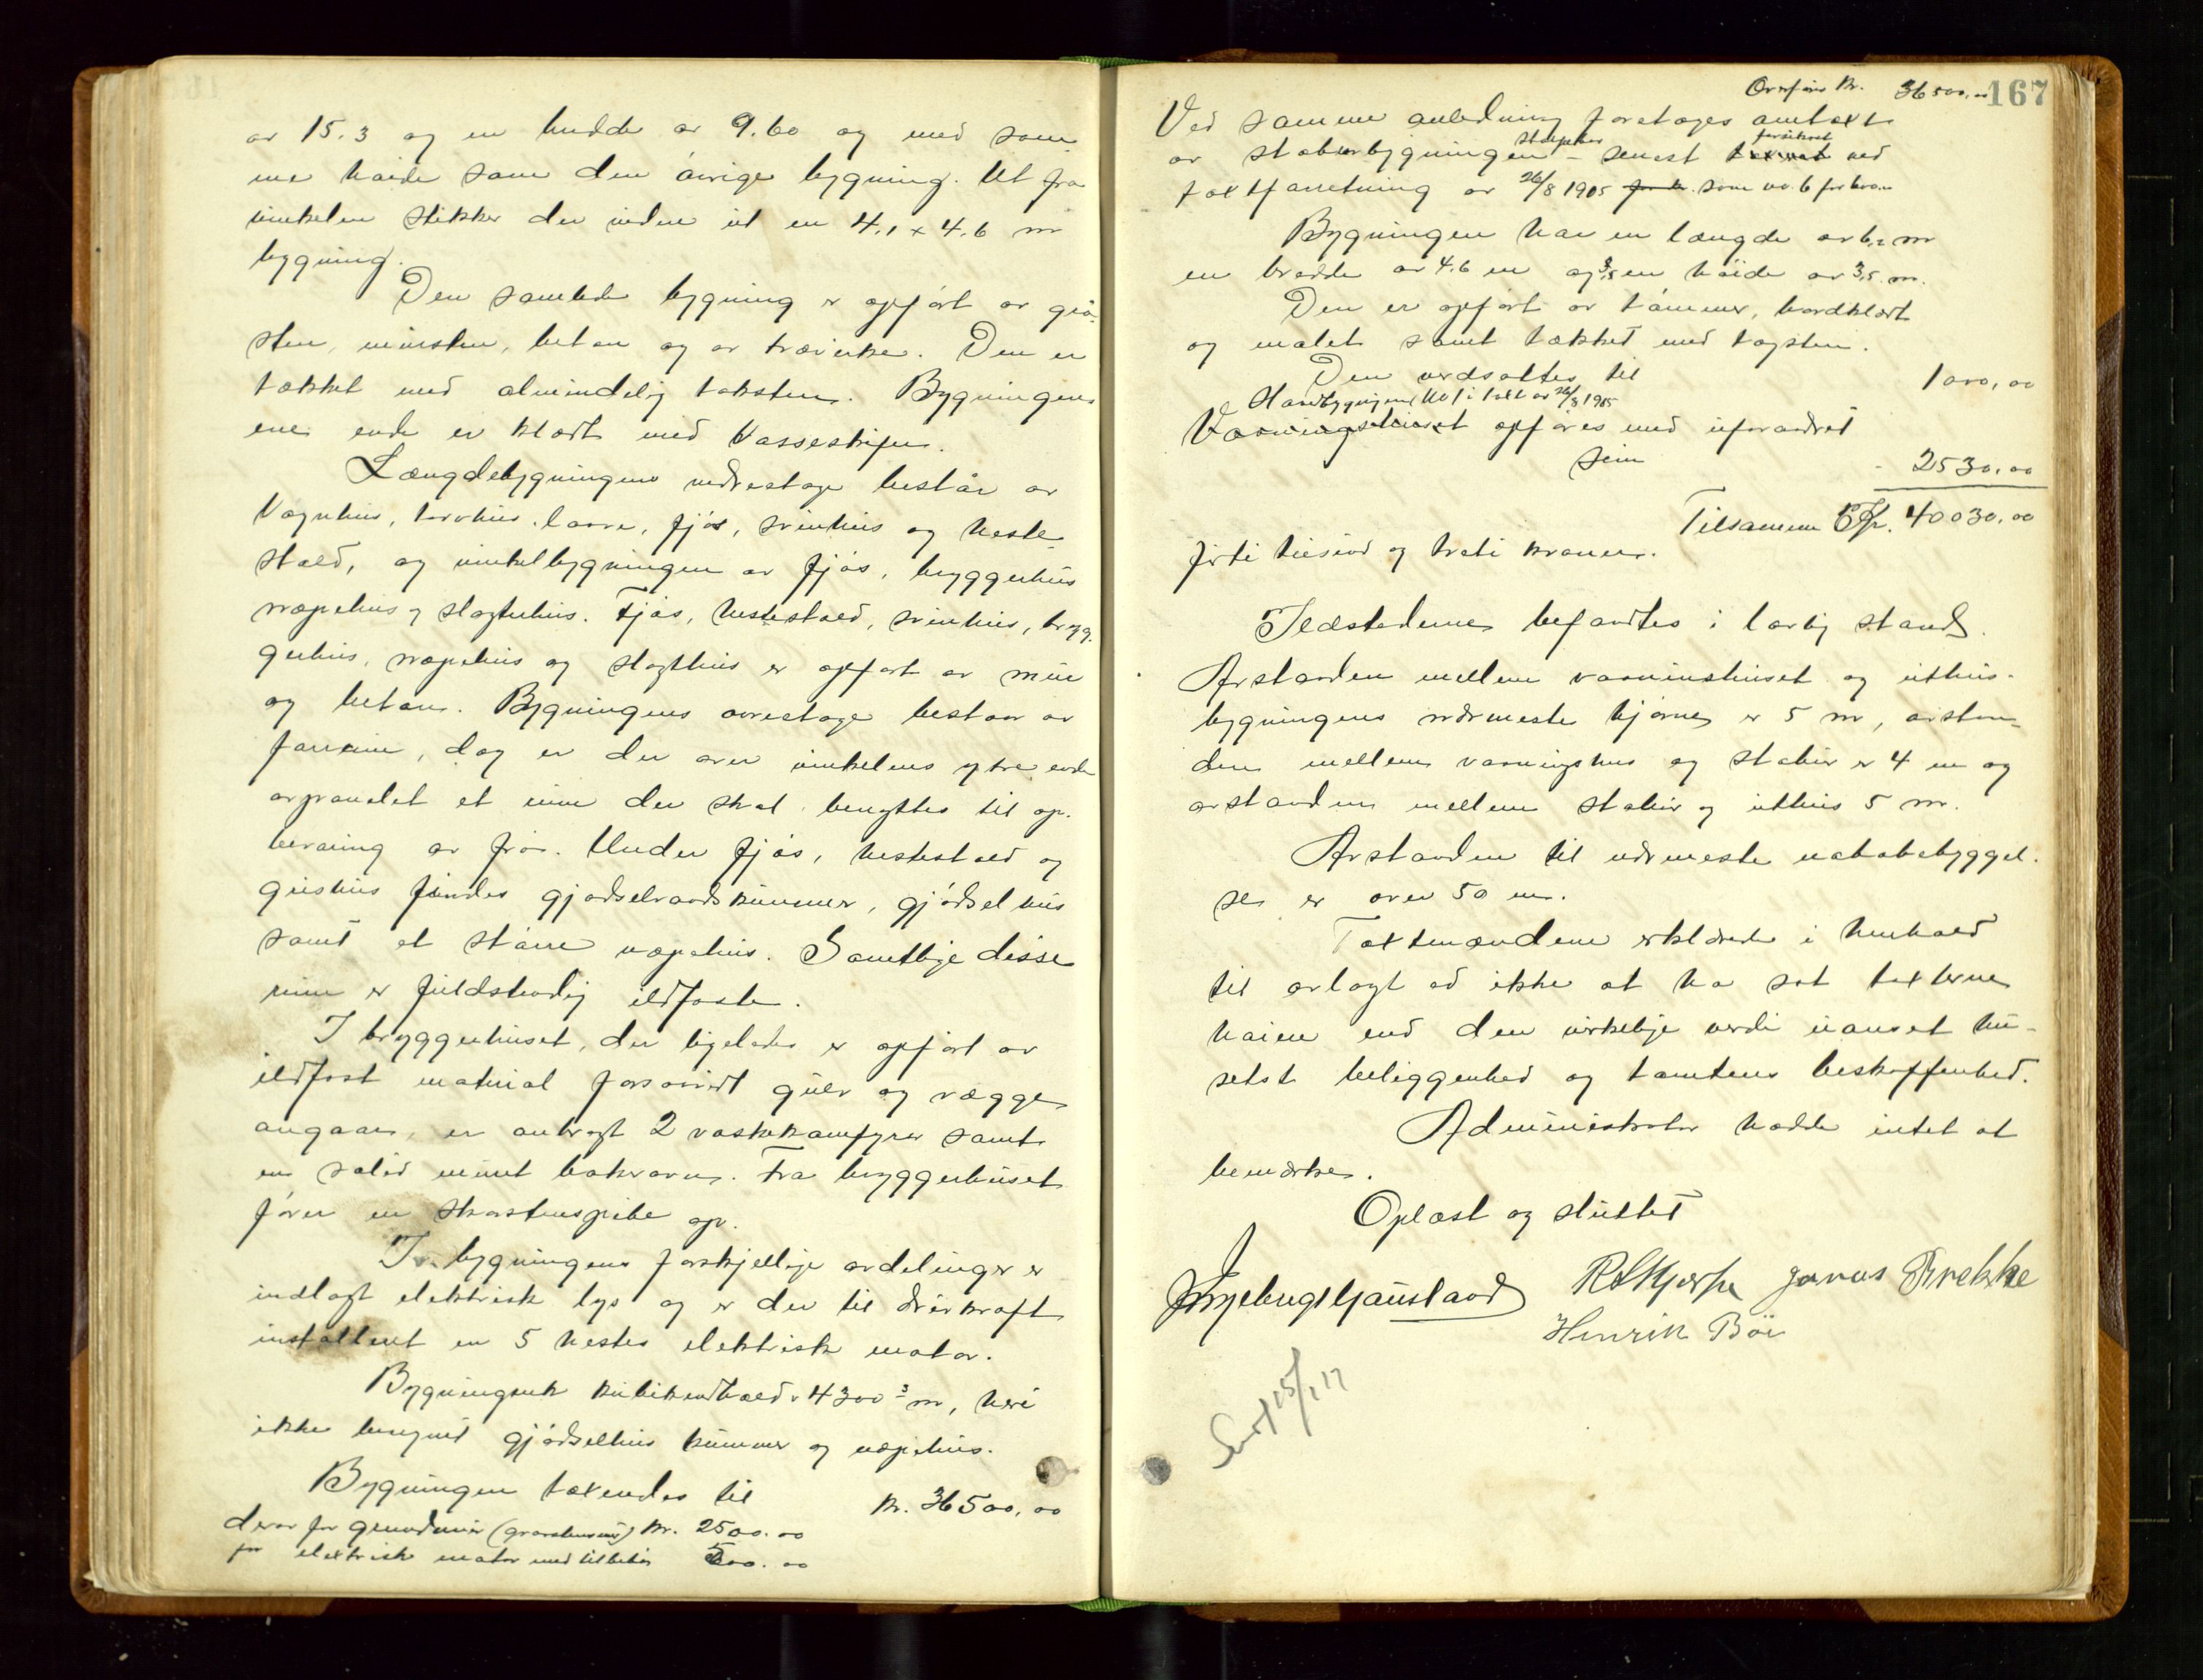 av 15.3 og en bredde av 9.60 og med sam-
me høide som den øvrige bygning. Ut fra
vinkelen stikker der videre ut en 4.1 x 4.6 m
bygning.
Den samlede bygning er opført av grå-
sten, mursten, beton og av træverke. Den er
tækket med almindelig taksten. Bygningens
ene ende er klædt med Vosseskifer.
Længdebygningens nedreetage består av
Vognhus, torvhus, laave, fjøs, svinhus og heste-
stald, og vinkelbygningen av fjøs, bryggerhus
næpehus og slagtehus. Fjøs, hestestald, svinhus, brygg-
gerhus, næpehus og slagthus er opført av mur
og beton. Bygningens øvreetage bestaar av
forrum, dog er der over vinkelens ytre ende
avpanelet et rum der skal benyttes til op-
bevaring av frø. Under fjøs, hestestald og
grishus findes gjødselvandskummer, gjødselhus
samt et større næpehus. Samtlige disse
rum er fuldstendig ildfaste.
I bryggerhuset, der ligeledes er opført av
ildfast material forsaavidt gulv og vægge
angaar, er anbragt 2 vaskekamfyrer samt
en solid muret bakerovn. Fra bryggerhuset
fører en skorstenspibe op.
I bygningens forskjellige avdelinger er
indlagt elektrisk lys og er der til drivkraft
installeret en 5 hestes elektrisk motor.
Bygningens kubikindhold er 4300 m³, heri
ikke beregnet gjødselhus kummer og næpehus.
Bygningen taxeredes til kr. 36500,00
derav for grundmur (graastensmur) kr. 2500.00
for elektrisk motor med tilbehør 500.00
167
Overført kr. 36500,00
Ved samme anledning foretages omtaxt
av stabursbygningen - senest forsikret ved
taxtforretning av 26/8 1915 som no. 6 for 600.00
Bygningen har en længde av 6.2 m
en bredde av 4.6 m og en høide av 3,5 m.
Den er opført av tømmer, bordklædt
og malet samt tækket med tagsten.
Den verdsættes til 1000,00
Hovedbygningen No 1 i taxt av 26/8 1915
Vaaningshuset opføres med uforandret
sum - 2530.00
Tilsammen Kr. 40030.00
førti tusind og treti kroner.
Ildstederne befandtes i lovlig stand.
Avstanden mellem vaaninshuset og uthus-
bygningens nærmeste hjørne er 5 m, avstan-
den mellem vaaningshus og stabur er 4 m og
avstanden mellem stabur og uthus 5 m.
Avstanden til nærmeste nabobebyggel-
se er over 50 m.
Taxtmændene erklærede i henhold
til avlagt ed ikke at ha sat taxterne
høiere end den virkelige verdi uanset hu-
sets beliggenhed og tomtens beskaffenhed.
Administrator hadde intet at
bemærke.
Oplæst og sluttet
Ingebregt Gausland Jonas Brekke
Henrik Bøe
Sendt 15/1 17